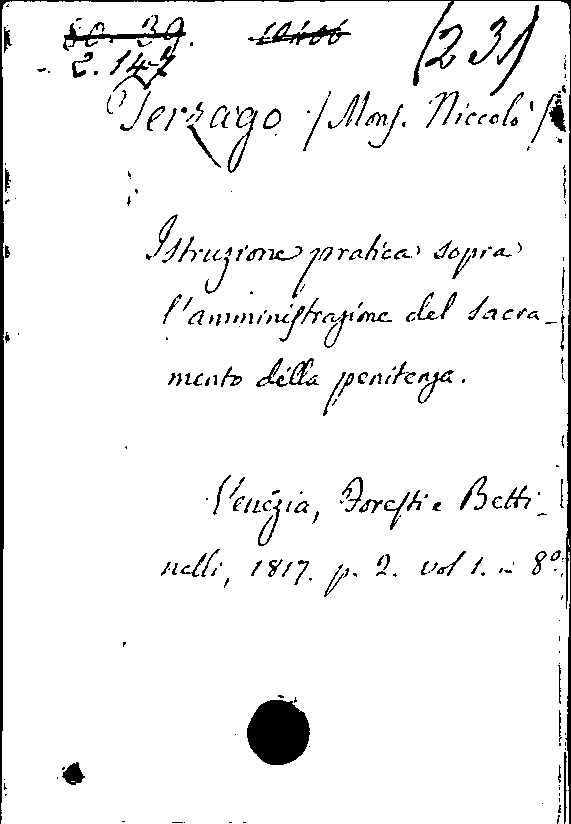 80. 39. 10406 (23)
2. 147
Terzago /Mons. Niccolò/
Istruzione pratica sopra
l'amministrazione del sacra-
mento della penitenza.
Venezia, Foresti e Betti-
nelli, 1817. p. 2. vol 1. in 8º